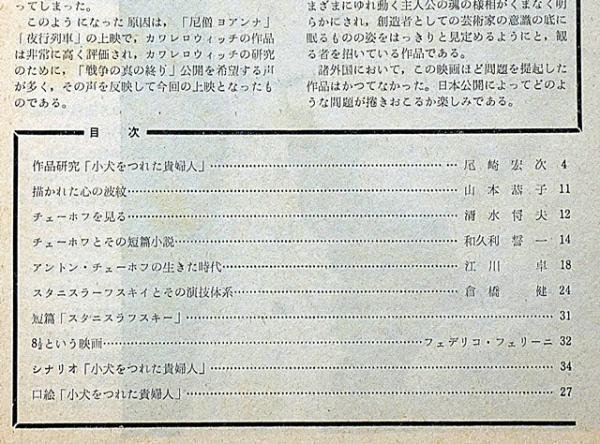 ってしまった。
このようになった原因は、「尼僧ヨアンナ」
「夜行列車」の上映で、カワレロウィッチの作品
は非常に高く評価され、カワレロウィッチの研究
のために、「戦争の真の終り」公開を希望する声
が多く、その声を反映して今回の上映となったも
のである。
まざまにゆれ動く主人公の魂の様相がくまなく明
らかにされ、創造者としての芸術家の意識の底に
眠るものの姿をはっきりと見定めるようにと、観
る者を招いている作品である。
諸外国において、この映画ほど問題を提起した
作品はかつてなかった。日本公開によってどのよ
うな問題が捲きおこるか楽しみである。
目次
作品研究「小犬をつれた貴婦人」……尾崎宏次 4
描かれた心の波紋……山本恭子 11
チェーホフを見る……清水邦夫 12
チェーホフとその短篇小説……和久利誓一 14
アントン・チェーホフの生きた時代……江川卓 18
スタニスラーフスキイとその演技体系……倉橋健 24
短篇「スタニスラフスキー」……31
8½という映画……フェデリコ・フェリーニ 32
シナリオ「小犬をつれた貴婦人」……34
口絵「小犬をつれた貴婦人」……27